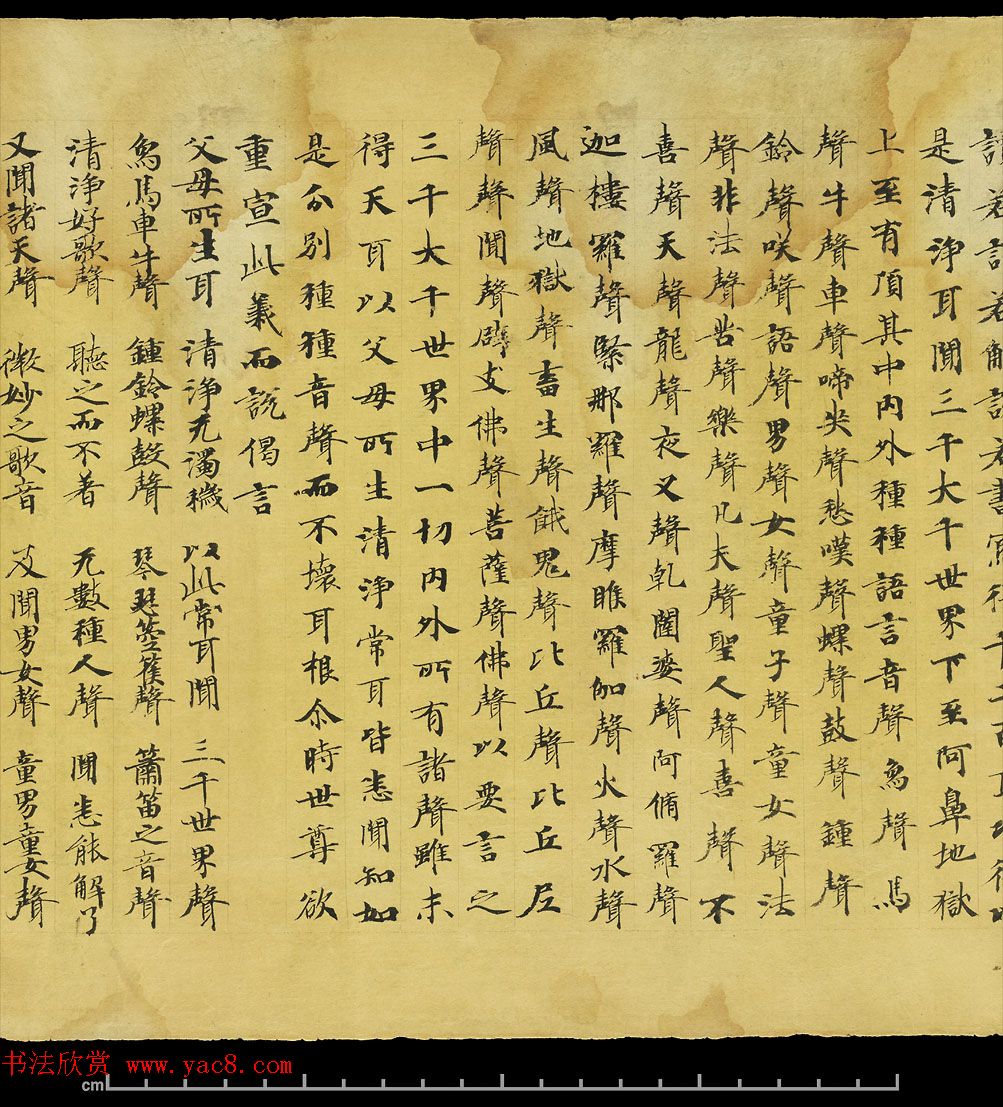 若解說若書寫得千二百
是清淨耳聞三千大千世界下至阿鼻地獄
上至有頂其中內外種種語言音聲象聲馬
聲牛聲車聲啼哭聲愁嘆聲螺聲鼓聲鍾聲
鈴聲咲聲語聲男聲女聲童子聲童女聲法
聲非法聲苦聲樂聲凡夫聲聖人聲喜聲不
喜聲天聲龍聲夜叉聲乹闥婆聲阿脩羅聲
迦樓羅聲緊那羅聲摩睺羅伽聲火聲水聲
風聲地獄聲畜生聲餓鬼聲比丘聲比丘尼
聲聲聞聲辟支佛聲菩薩聲佛聲以要言之
三千大千世界中一切內外所有諸聲雖未
得天耳以父母所生清淨常耳皆悉聞知如
是分別種種音聲而不壞耳根尒時世尊欲
重宣此義而說偈言
父母所生耳 清淨无濁穢 以此常耳聞 三千世界聲
象馬車牛聲 鍾鈴螺鼓聲 琴瑟箜篌聲 簫笛之音聲
清淨好歌聲 聽之而不著 无數種人聲 聞悉能解了
又聞諸天聲 微妙之歌音 及聞男女聲 童男童女聲
书法欣赏 www.yac8.com
cm